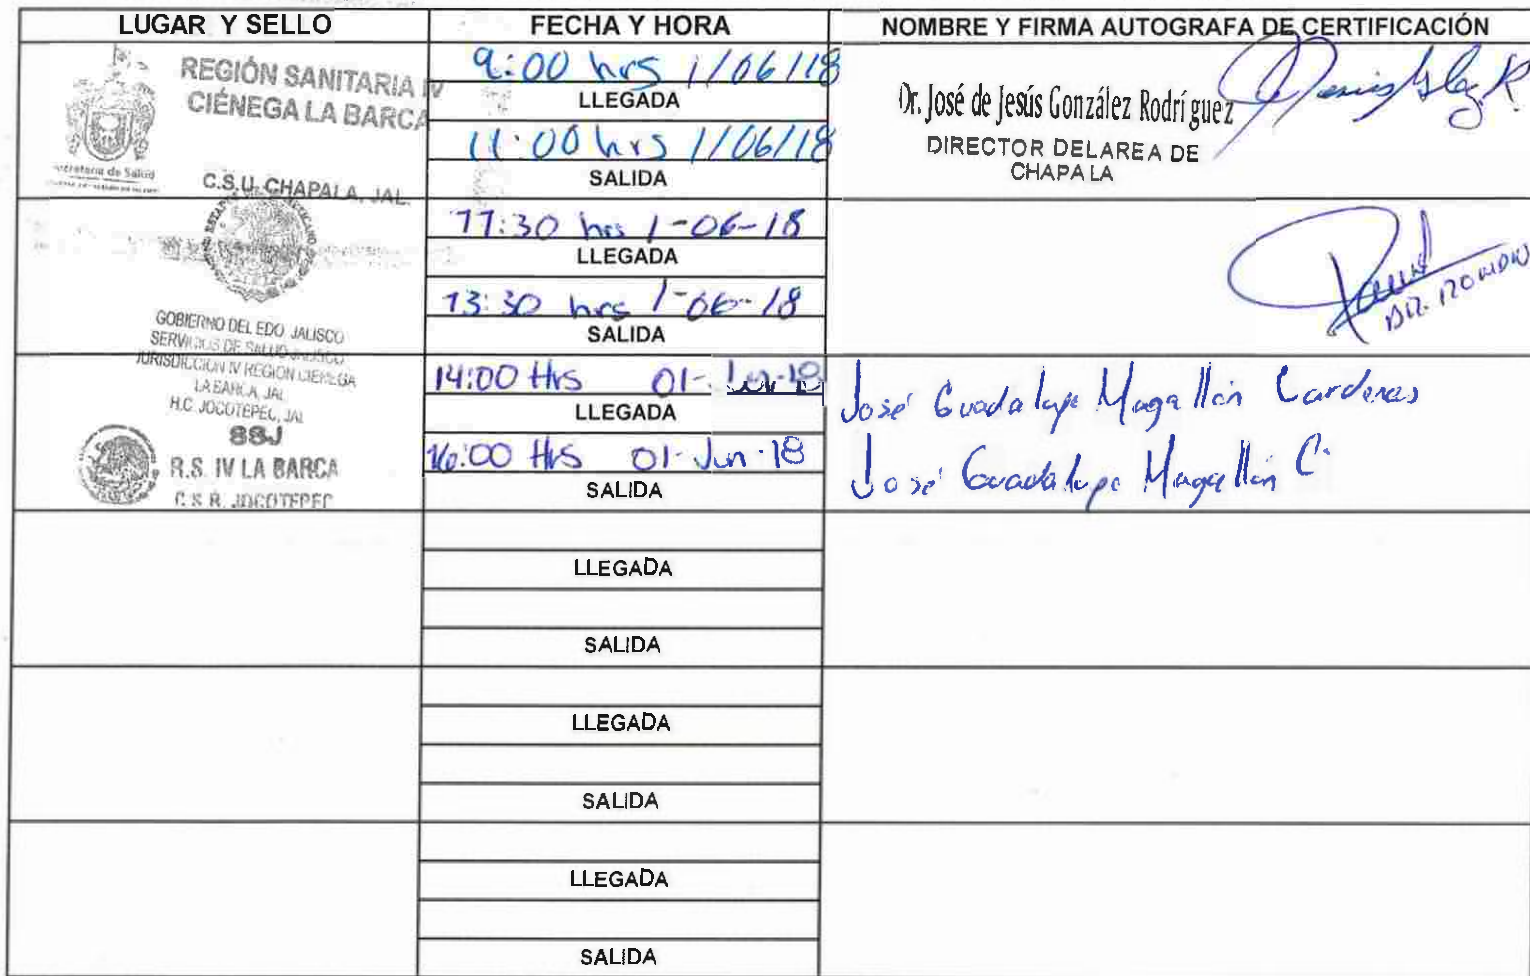 LUGAR Y SELLO
FECHA Y HORA
NOMBRE Y FIRMA AUTOGRAFA DE CERTIFICACIÓN
REGIÓN SANITARIA IV
CIÉNEGA LA BARCA
Secretaría de Salud
C.S.U. CHAPALA, JAL.
9:00 hrs 1/06/18
LLEGADA
11:00 hrs 1/06/18
SALIDA
Dr. José de Jesús González Rodríguez
DIRECTOR DELAREA DE
CHAPALA
GOBIERNO DEL EDO. JALISCO
SERVICIOS DE SALUD JALISCO
JURISDICCION IV REGION CIENEGA
LA BARCA, JAL
H.C. JOCOTEPEC, JAL
11:30 hrs 1-06-18
LLEGADA
13:30 hrs 1-06-18
SALIDA
SSJ
R.S. IV LA BARCA
C.S.R. JOCOTEPEC
14:00 Hrs 01-Jun-18
LLEGADA
16:00 Hrs 01-Jun-18
SALIDA
José Guadalupe Magallón Cardenas
José Guadalupe Magallón C.
LLEGADA
SALIDA
LLEGADA
SALIDA
LLEGADA
SALIDA